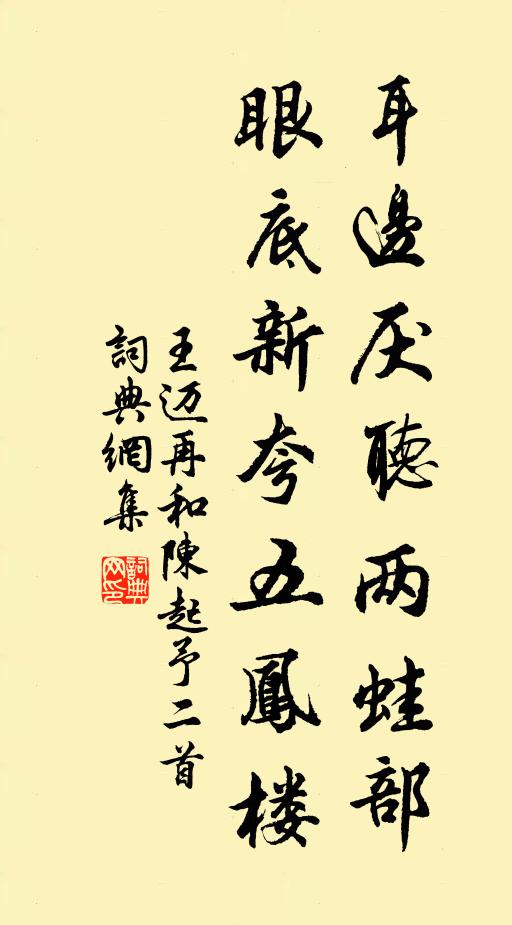 耳邊厌聽两蛙部
眼底新夸五鳳楼
王迈再和陳起予二首
詞典網集
詞典网印